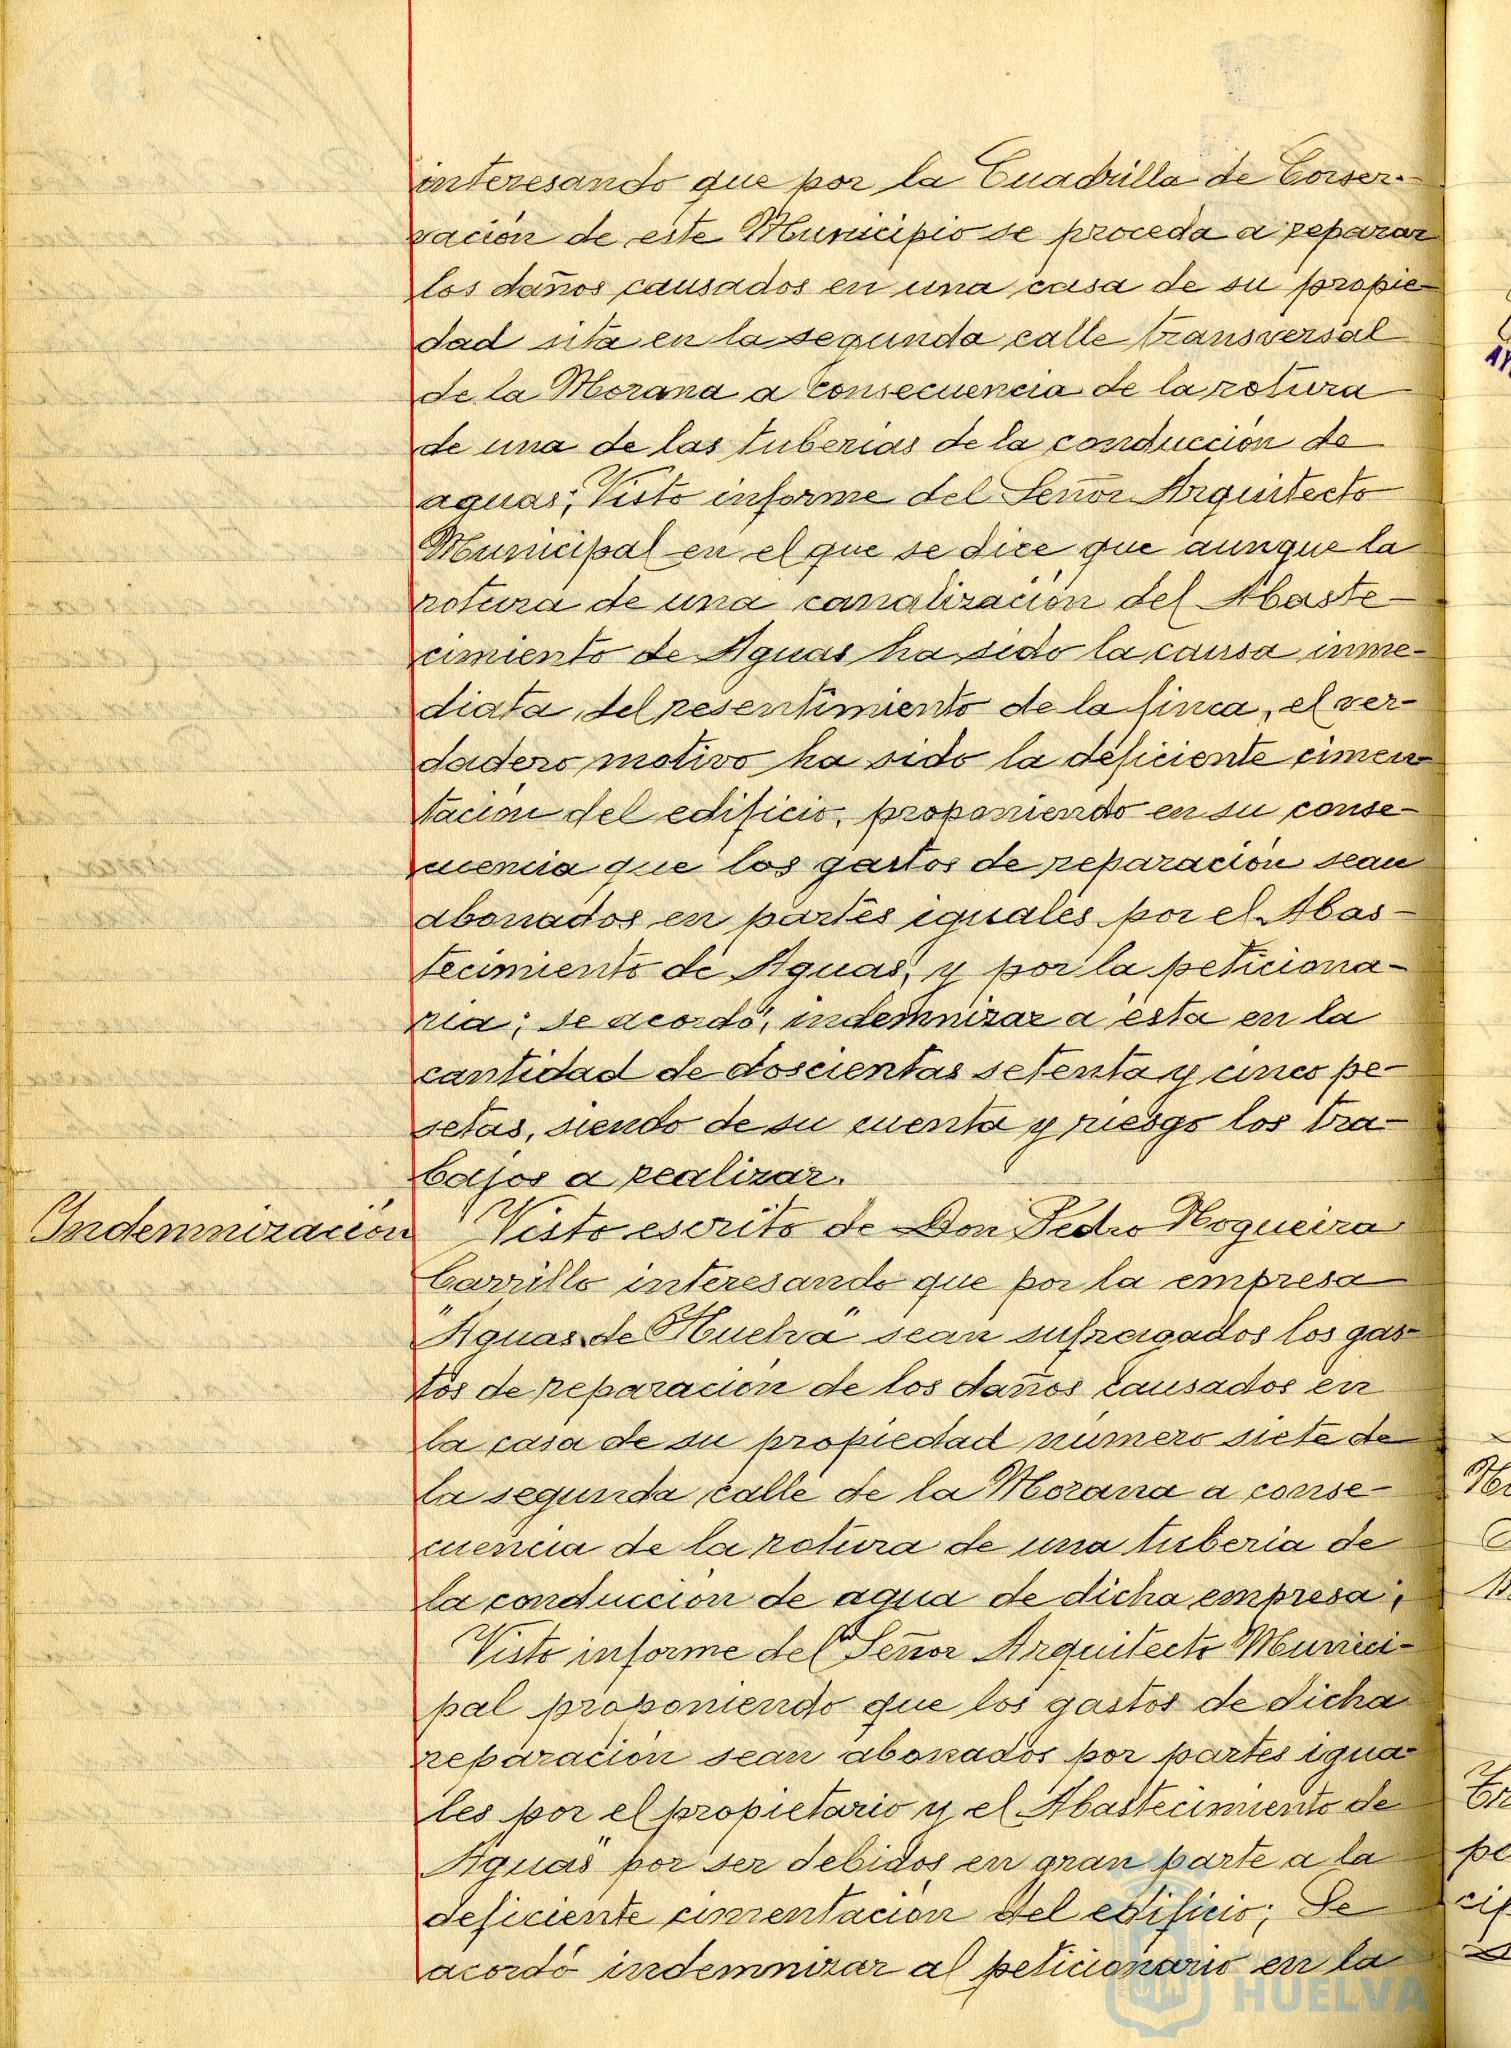 interesando que por la Cuadrilla de Conser-
vación de este Municipio se proceda a reparar
los daños causados en una casa de su propie-
dad sita en la segunda calle transversal
de la Morana a consecuencia de la rotura
de una de las tuberias de la conducción de
aguas; Visto informe del Señor Arquitecto
Municipal en el que se dice que aunque la
rotura de una canalización del Abaste-
cimiento de Aguas ha sido la causa inme-
diata del resentimiento de la finca, el ver-
dadero motivo ha sido la deficiente cimen-
tación del edificio, proponiendo en su conse-
cuencia que los gastos de reparación sean
abonados en partes iguales por el Abas-
tecimiento de Aguas, y por la peticiona-
ria; se acordó, indemnizar a ésta en la
cantidad de doscientas setenta y cinco pe-
setas, siendo de su cuenta y riesgo los tra-
bajos a realizar.
Indemnización Visto escrito de Don Pedro Nogueira
Carrillo interesando que por la empresa
"Aguas de Huelva" sean sufragados los gas-
tos de reparación de los daños causados en
la casa de su propiedad número siete de
la segunda calle de la Morana a conse-
cuencia de la rotura de una tuberia de
la conducción de agua de dicha empresa;
Visto informe del Señor Arquitecto Munici-
pal proponiendo que los gastos de dicha
reparación sean abonados por partes igua-
les por el propietario y el Abastecimiento de
Aguas" por ser debidos en gran parte a la
deficiente cimentación del edificio; Se
acordó indemnizar al peticionario en la
HUELVA